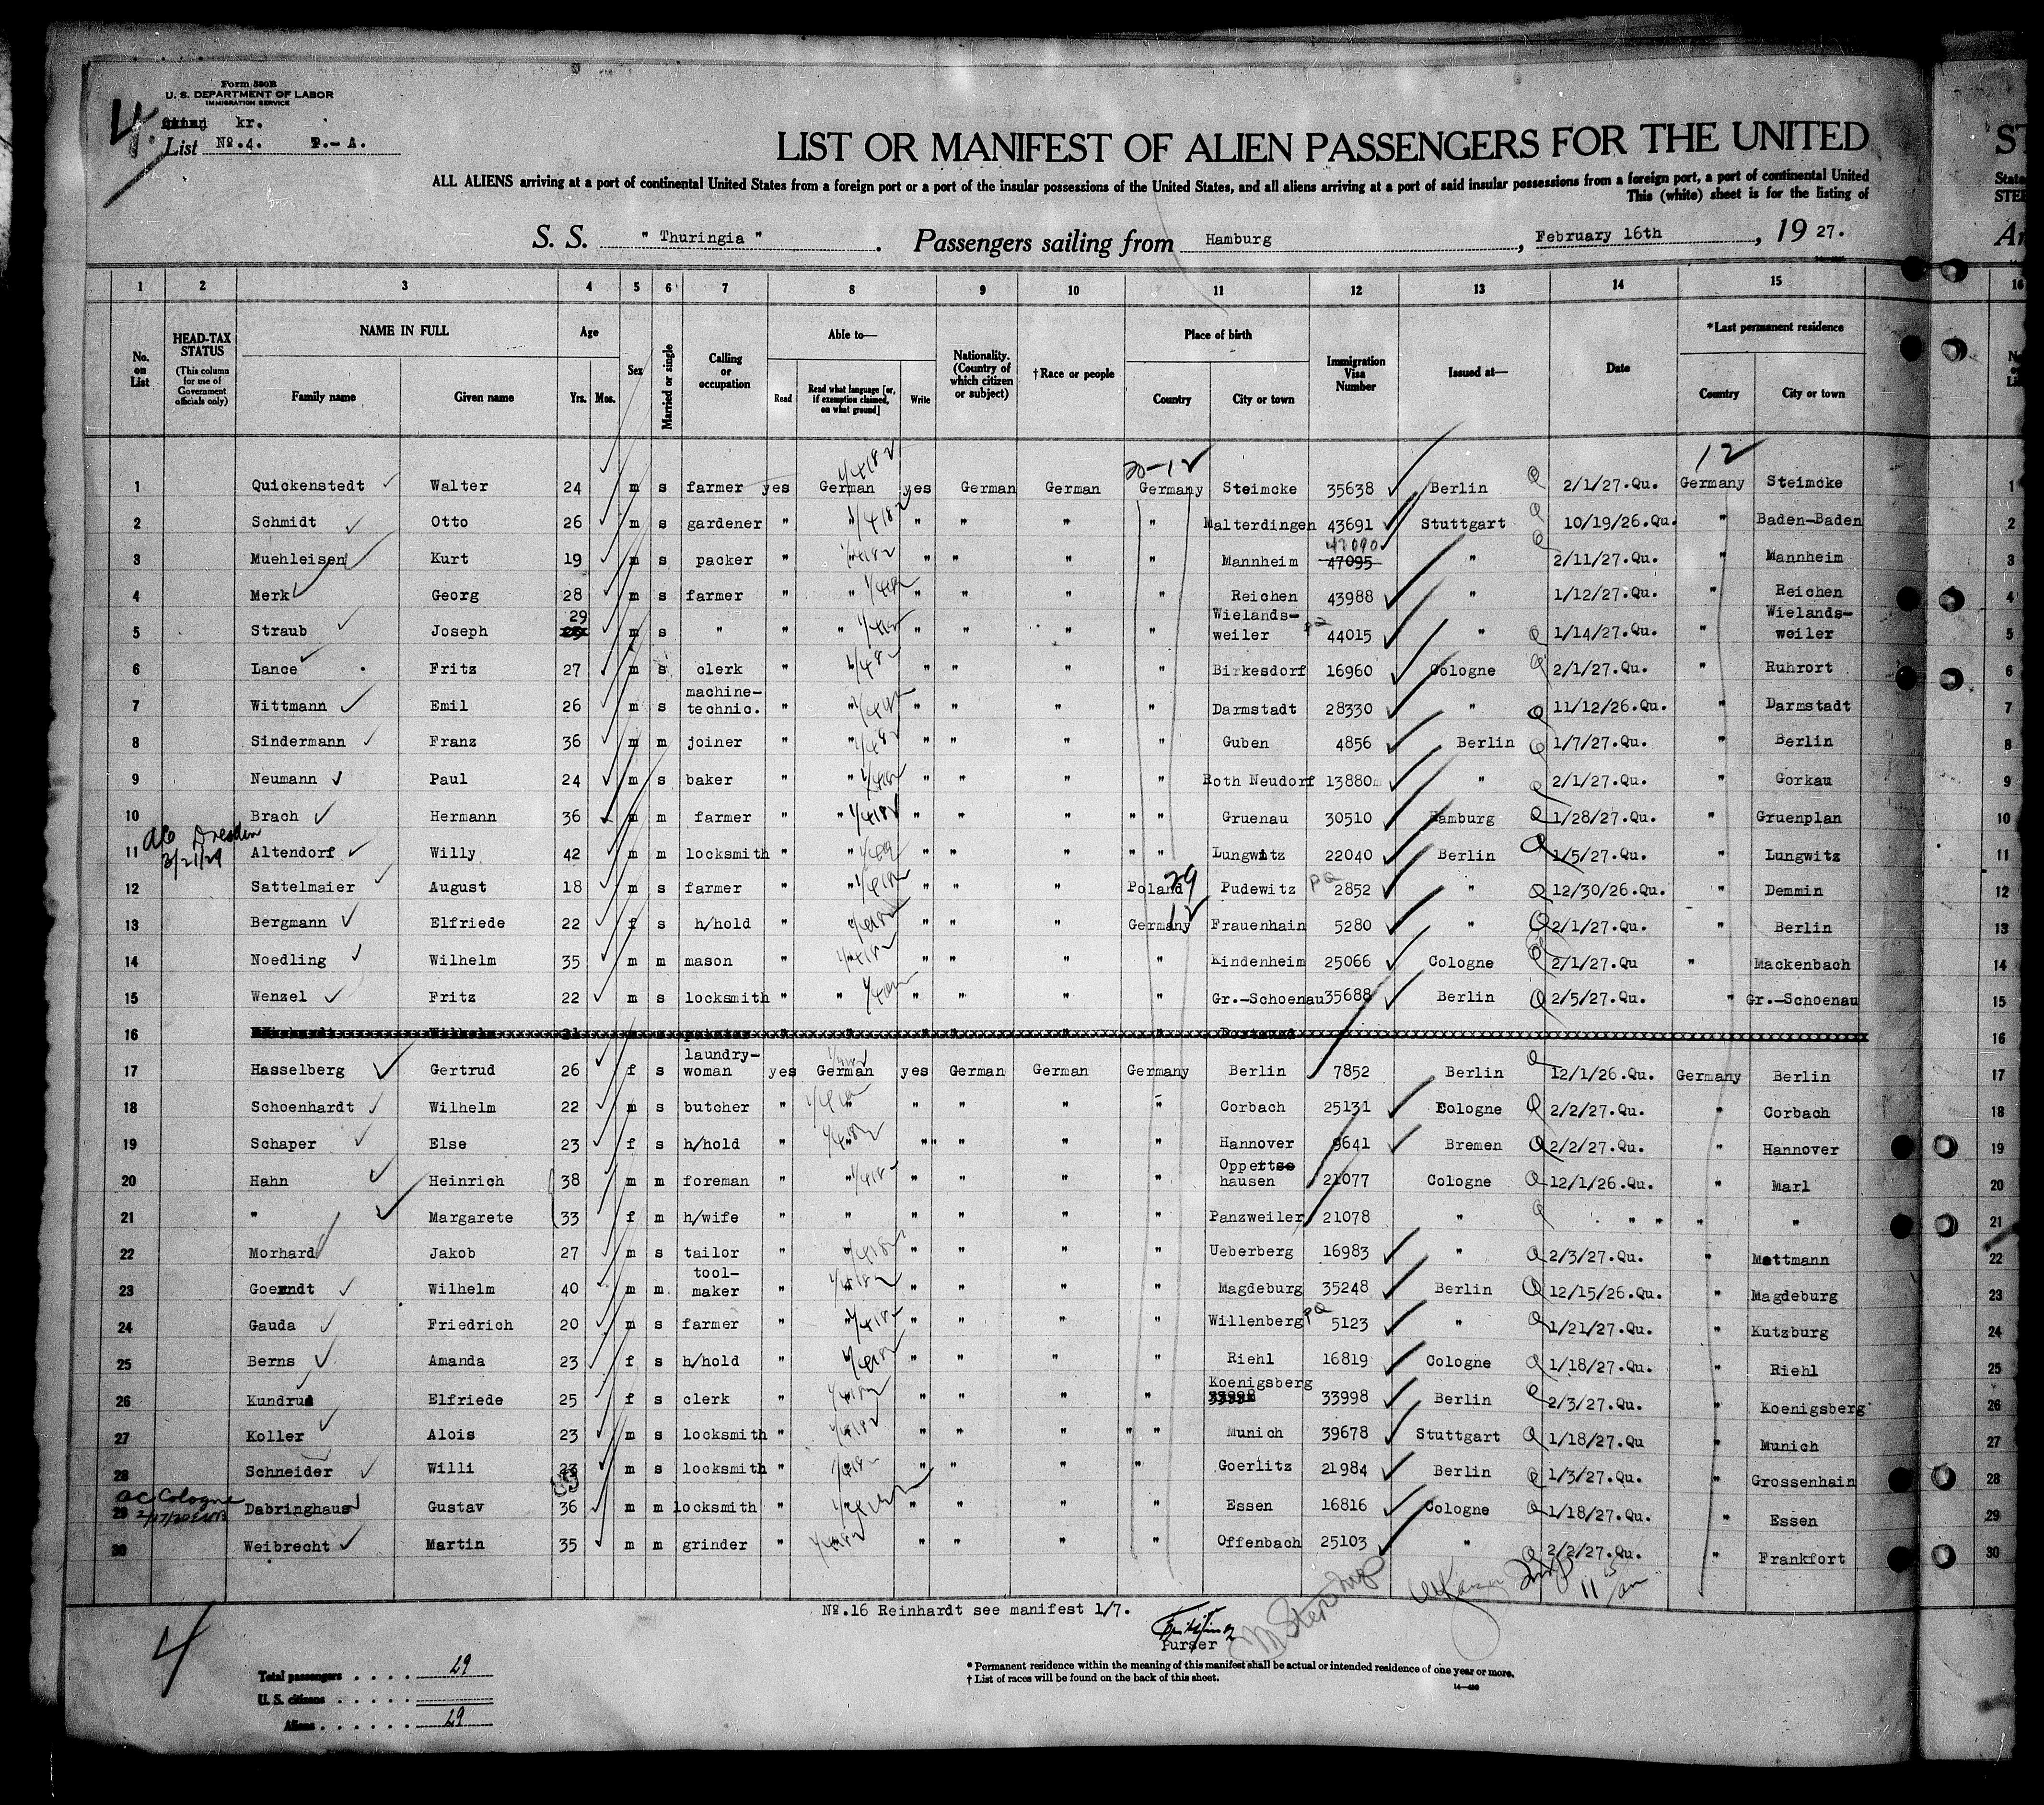 Form 500B
U. S. DEPARTMENT OF LABOR
IMMIGRATION SERVICE
4
kr.
List No.4. T.- A.
LIST OR MANIFEST OF ALIEN PASSENGERS FOR THE UNITED
ST
ALL ALIENS arriving at a port of continental United States from a foreign port or a port of the insular possessions of the United States, and all aliens arriving at a port of said insular possessions from a foreign port, a port of continental United
State
This (white) sheet is for the listing of
STEE
S. S. " Thuringia " . Passengers sailing from Hamburg , February 16th , 19 27.
1 2 3 4 5 6 7 8 9 10 11 12 13 14 15 16
No. on List
HEAD-TAX STATUS
(This column for use of Government officials only)
NAME IN FULL
Family name Given name
Age
Yrs. Mos.
Sex
Married or single
Calling or occupation
Able to—
Read Read what language [or, if exemption claimed, on what ground] Write
Nationality. (Country of which citizen or subject)
† Race or people
Place of birth
Country City or town
Immigration Visa Number
Issued at—
Date
* Last permanent residence
Country City or town
20-12 12
1 Quickenstedt Walter 24 m s farmer yes German yes German German Germany Steimcke 35638 Berlin 2/1/27.Qu. Germany Steimcke 1
2 Schmidt Otto 26 m s gardener " " " " " " Malterdingen 43691 Stuttgart 10/19/26.Qu. " Baden-Baden 2
47090
3 Muehleisen Kurt 19 m s packer " " " " " " Mannheim 47095 " 2/11/27.Qu. " Mannheim 3
4 Merk Georg 28 m s farmer " " " " " " Reichen 43988 " 1/12/27.Qu. " Reichen 4
5 Straub Joseph 29 m s " " " " " " " Wielands-weiler 44015 " 1/14/27.Qu. " Wielands-weiler 5
6 Lance Fritz 27 m s clerk " " " " " " Birkesdorf 16960 Cologne 2/1/27.Qu. " Ruhrort 6
7 Wittmann Emil 26 m s machine-technic. " " " " " " Darmstadt 28330 " 11/12/26.Qu. " Darmstadt 7
8 Sindermann Franz 36 m m joiner " " " " " " Guben 4856 Berlin 1/7/27.Qu. " Berlin 8
9 Neumann Paul 24 m s baker " " " " " " Roth Neudorf 13880 " 2/1/27.Qu. " Gorkau 9
10 Brach Hermann 36 m m farmer " " " " " " " Gruenau 30510 Hamburg 1/28/27.Qu. " Gruenplan 10
Dresden
3/21/29
11 Altendorf Willy 42 m m locksmith " " " " " " " Lungwitz 22040 Berlin 1/5/27.Qu. " Lungwitz 11
12 Sattelmaier August 18 m s farmer " " " " " Poland 29 Pudewitz 2852 " 12/30/26.Qu. " Demmin 12
13 Bergmann Elfriede 22 f s h/hold " " " " " Germany 12 Frauenhain 5280 " 2/1/27.Qu. " Berlin 13
14 Noedling Wilhelm 35 m m mason " " " " " " Kindenheim 25066 Cologne 2/1/27.Qu " Mackenbach 14
15 Wenzel Fritz 22 m s locksmith " " " " " " Gr.-Schoenau 35688 Berlin 2/5/27.Qu. " Gr.-Schoenau 15
16 16
17 Hasselberg Gertrud 26 f s laundry-woman yes German yes German German Germany Berlin 7852 Berlin 12/1/26.Qu. Germany Berlin 17
18 Schoenhardt Wilhelm 22 m s butcher " " " " " " Corbach 25131 Cologne 2/2/27.Qu. " Corbach 18
19 Schaper Else 23 f s h/hold " " " " " " Hannover 9641 Bremen 2/2/27.Qu. " Hannover 19
20 Hahn Heinrich 38 m m foreman " " " " " " hausen 21077 Cologne 12/1/26.Qu. " Marl 20
21 " Margarete 33 f m h/wife " " " " " " Panzweiler 21078 " " " " " 21
22 Morhard Jakob 27 m s tailor " " " " " " Ueberberg 16983 " 2/3/27.Qu. " Mettmann 22
23 Wilhelm 40 m m tool-maker " " " " " " Magdeburg 35248 Berlin 12/15/26.Qu. " Magdeburg 23
24 Gauda Friedrich 20 m s farmer " " " " " " Willenberg 5123 " 1/21/27.Qu. " Kutzburg 24
25 Berns Amanda 23 f s h/hold " " " " " " Riehl 16819 Cologne 1/18/27.Qu. " Riehl 25
26 Kundrus Elfriede 25 f s clerk " " " " " " Koenigsberg 33998 Berlin 2/3/27.Qu. " Koenigsberg 26
27 Koller Alois 23 m s locksmith " " " " " " " Munich 39678 Stuttgart 1/18/27.Qu " Munich 27
28 Schneider Willi 23 m s locksmith " " " " " " Goerlitz 21984 Berlin 1/3/27.Qu. " Grossenhain 28
Cologne
29 Dabringhaus Gustav 36 m m locksmith " " " " " " Essen 16816 Cologne 1/18/27.Qu. " Essen 29
30 Weibrecht Martin 35 m m grinder " " " " " " Offenbach 25103 " 2/2/27.Qu. " Frankfort 30
No.16 Reinhardt see manifest 1/7.
Purser
4
Total passengers . . . . 29
U. S. citizens . . . . .
Aliens . . . . . . 29
* Permanent residence within the meaning of this manifest shall be actual or intended residence of one year or more.
† List of races will be found on the back of this sheet.